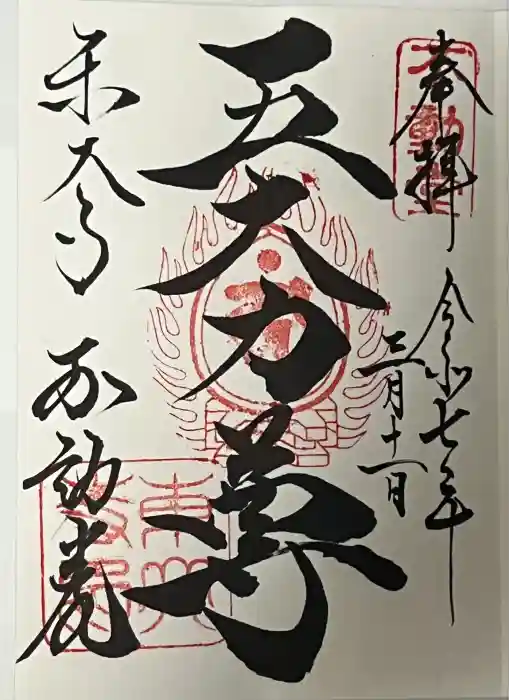 奉拝
令和七年
三月十一日
五大力尊
東大寺 不動堂